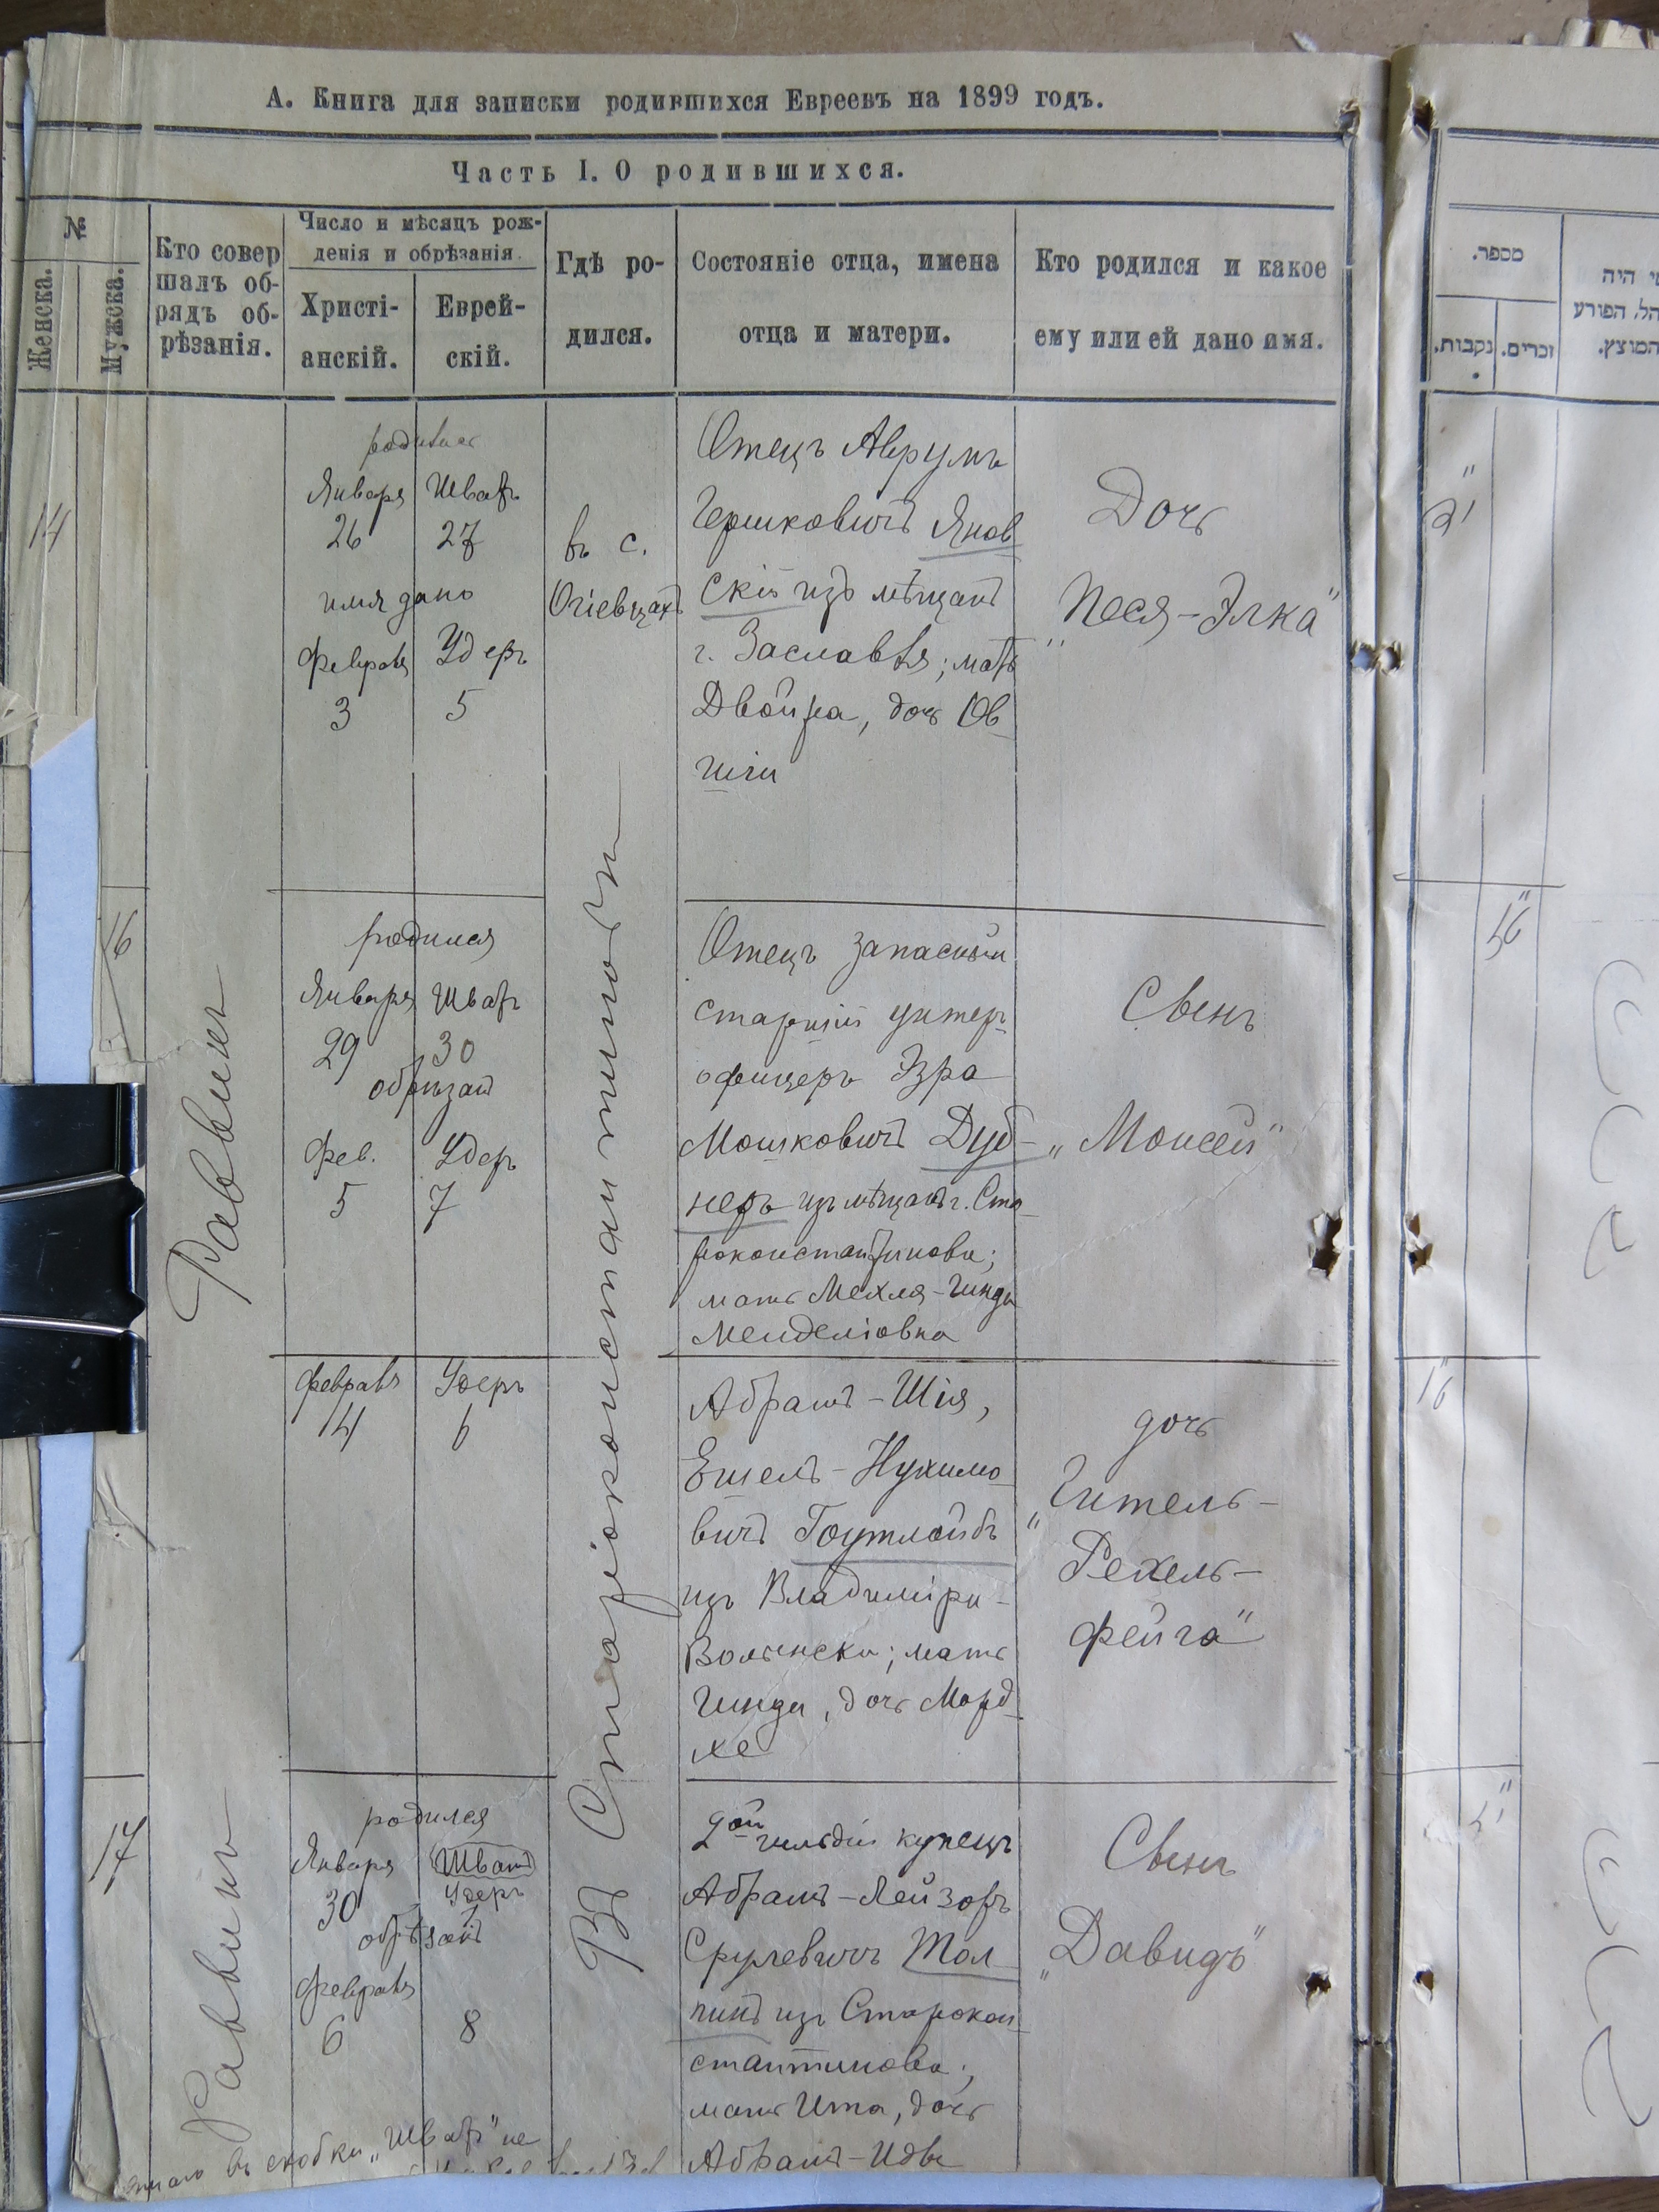 А. Книга для записки родившихся Евреевъ на 1899 годъ.
Часть I. О родившихся.
№
Женска.
Мужска.
Кто совер
шалъ об-
рядъ об-
рѣзанія.
Число и мѣсяцъ рож-
денія и обрѣзанія.
Христі-
анскій.
Еврей-
скій.
Гдѣ ро-
дился.
Состояніе отца, имена
отца и матери.
Кто родился и какое
ему или ей дано имя.
14
родилась
Января Шватъ
26 27
имя дано
Февраля Удеръ
3 5
въ с.
Огіевцахъ
Отецъ Аврумъ
Гершковичъ Янов
скій изъ мѣщанъ
г. Заславля; мать
Двойра, дочь Ов
шіи
Дочь
„Песя-Элка"
16
Раввинъ
родился
Января Шватъ
29 30
обрѣзанъ
Фев. Удеръ
5 7
Въ Старіоконстантиновѣ
Отецъ запасный
старшій унтеръ
офицеръ Эзра
Мошковичъ Дуб-
неръ изъ мѣщанъ г. Ста
роконстантинова;
мать Мехля-Гинда
Менделіовна
Сынъ
„Моисей"
Февраля Удеръ
14 6
Абрамъ-Шія,
Ешель-Нухимо
вичъ Гоутлойбъ
изъ Владиміра-
Волынска; мать
Гинда, дочь Морд
хе
дочь
„Гитель-
Рехель-
Фейга"
17
Раввинъ
родился
Января (Шватъ)
30 Удеръ
обрѣзанъ
Февраля
6 8
2ой гильдіи купецъ
Абрамъ-Лейзоръ
Срулевичъ Тол
пинъ изъ Старокон
стантинова;
мать Ита, дочь
Абрамъ-Идве
Сынъ
„Давидъ"
въ скобки „Шватъ" не
מספר.
נקבות.
זכרים.
י היה
הל, הפורע
המוצץ.